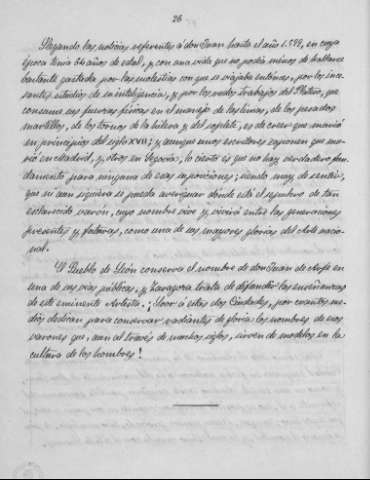 26
Llegando las noticias referentes á don Juan hasta el año 1.599, en cuya
época tenía 64 años de edad, y con una vida que no podía menos de hallarse
bastante gastada por las molestias con que se viajaba entónces, por los ince-
santes estudios de su inteligencia, y por los rudos trabajos del Platero, que
consume sus fuerzas físicas en el manejo de las limas, de los pesados
martillos, de los tornos de la hilera y del soplete, es de creer que murió
en principios del siglo XVII; y aunque unos escritores suponen que mu-
rió en Madrid, y otros en Segovia, lo cierto es que no hay verdadero fun-
damento para ninguna de esas suposiciones; siendo muy de sentir,
que ni aun siquiera se pueda averiguar donde esté el sepulcro de tan
esclarecido varón, cuyo nombre vive y vivirá entre las generaciones
presentes y futuras, como una de las mayores glorias del Arte nacio-
nal.
El Pueblo de León conserva el nombre de don Juan de Arfe en
una de sus vías públicas, y Zaragoza trata de difundir las enseñanzas
de este eminente Artista. ¡Loor á estas dos Ciudades, por cuantos me-
dios dedican para conservar radiantes de gloria los nombres de esos
varones que, aun al través de muchos siglos, sirven de modelos en la
cultura de los hombres!